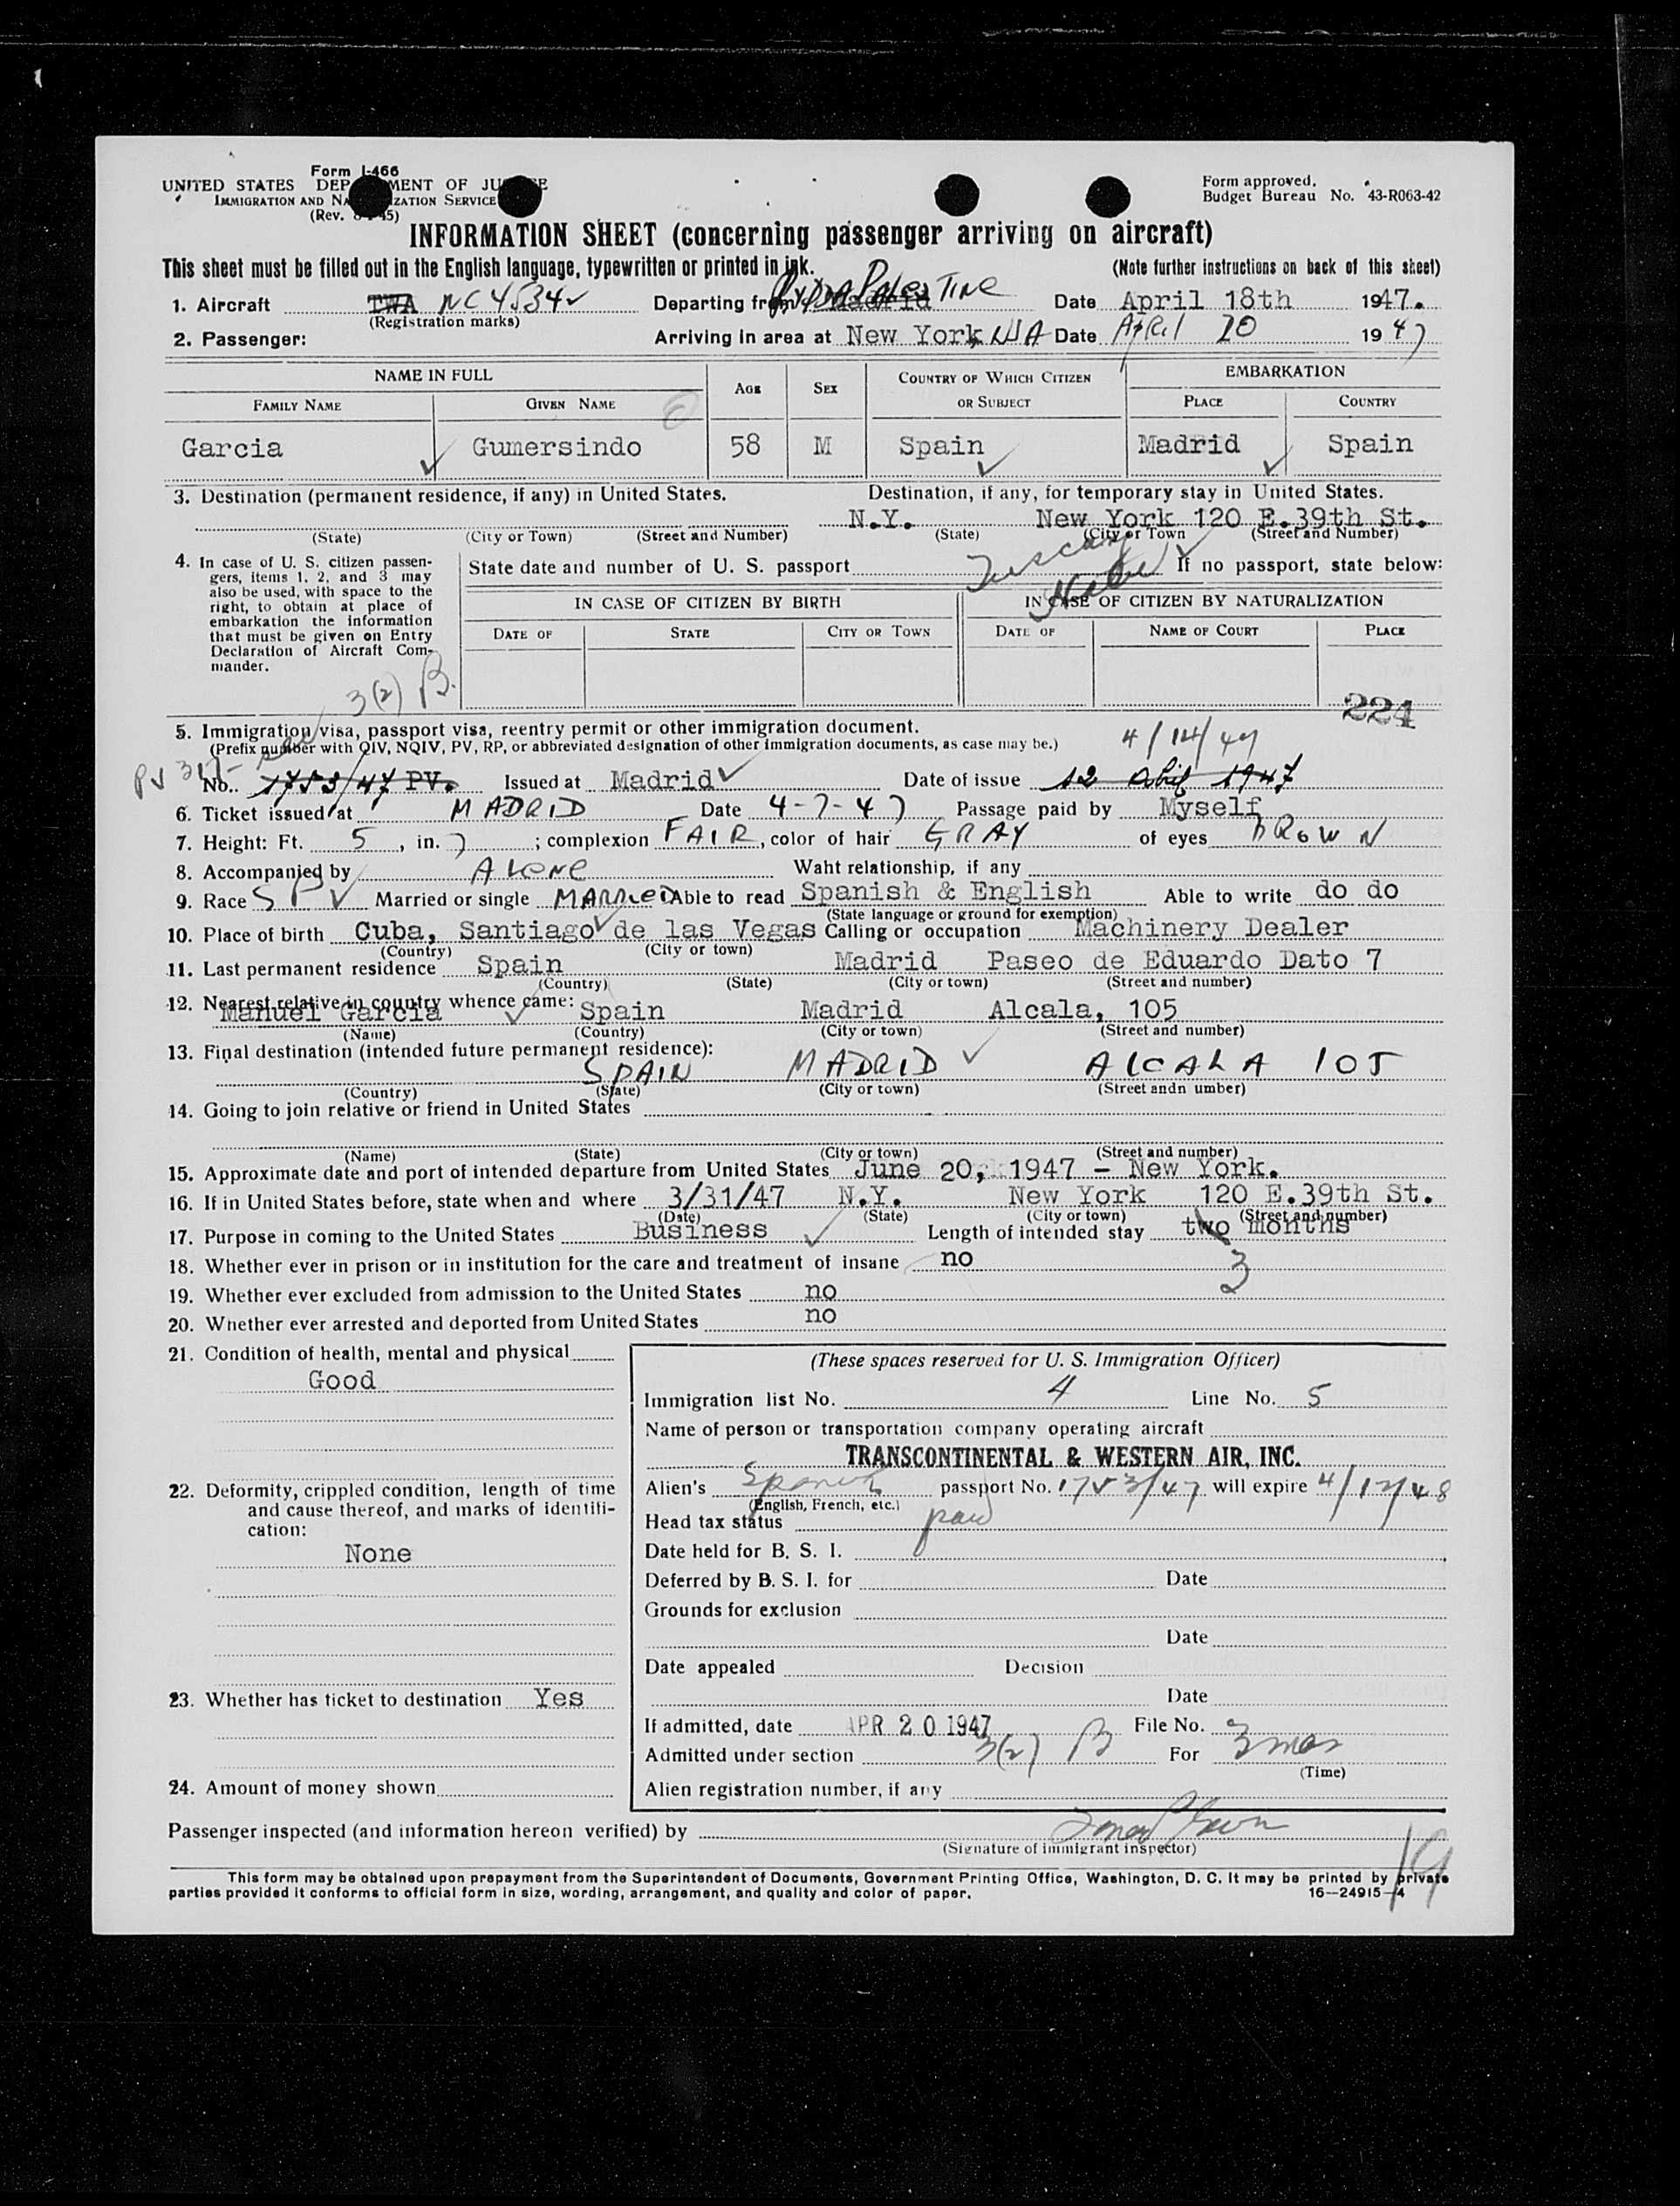 Form I-466
UNITED STATES DEPARTMENT OF JUSTICE
IMMIGRATION AND NATURALIZATION SERVICE
(Rev. 45)
Form approved.
Budget Bureau No. 43-R063-42
INFORMATION SHEET (concerning passenger arriving on aircraft)
This sheet must be filled out in the English language, typewritten or printed in ink. (Note further instructions on back of this sheet)
1. Aircraft TWA NC4534 Departing from Lydda Palestine Madrid Date April 18th 1947.
(Registration marks)
2. Passenger: Arriving in area at New York, NJA Date APRIL 20 1947
NAME IN FULL AGE SEX COUNTRY OF WHICH CITIZEN OR SUBJECT EMBARKATION
FAMILY NAME GIVEN NAME PLACE COUNTRY
Garcia Gumersindo 58 M Spain Madrid Spain
3. Destination (permanent residence, if any) in United States. Destination, if any, for temporary stay in United States.
N.Y. New York 120 E.39th St.
(State) (City or Town) (Street and Number) (State) (City or Town (Street and Number)
Tuscany Hotel
4. In case of U. S. citizen passengers, items 1, 2, and 3 may also be used, with space to the right, to obtain at place of embarkation the information that must be given on Entry Declaration of Aircraft Commander.
State date and number of U. S. passport If no passport, state below:
IN CASE OF CITIZEN BY BIRTH IN CASE OF CITIZEN BY NATURALIZATION
DATE OF STATE CITY OR TOWN DATE OF NAME OF COURT PLACE
3(2) B.
224
5. Immigration visa, passport visa, reentry permit or other immigration document.
(Prefix number with QIV, NQIV, PV, RP, or abbreviated designation of other immigration documents, as case may be.)
4/14/47
No.. 1753/47 PV. Issued at Madrid Date of issue 12 Abril 1947
6. Ticket issued at MADRID Date 4-7-47 Passage paid by Myself
7. Height: Ft. 5, in. 7; complexion FAIR, color of hair GRAY of eyes BROWN
8. Accompanied by ALONE Waht relationship, if any
9. Race SP Married or single MARRIED Able to read Spanish & English Able to write do do
(State language or ground for exemption)
10. Place of birth Cuba, Santiago de las Vegas Calling or occupation Machinery Dealer
(Country) (City or town)
11. Last permanent residence Spain Madrid Paseo de Eduardo Dato 7
(Country) (State) (City or town) (Street and number)
12. Nearest relative in country whence came:
Manuel Garcia Spain Madrid Alcala, 105
(Name) (Country) (City or town) (Street and number)
13. Final destination (intended future permanent residence):
SPAIN MADRID ALCALA 105
(Country) (State) (City or town) (Street andn umber)
14. Going to join relative or friend in United States
(Name) (State) (City or town) (Street and number)
15. Approximate date and port of intended departure from United States June 20, 1947 - New York.
16. If in United States before, state when and where 3/31/47 N.Y. New York 120 E.39th St.
(Date) (State) (City or town) (Street and number)
17. Purpose in coming to the United States Business Length of intended stay two months
3
18. Whether ever in prison or in institution for the care and treatment of insane no
19. Whether ever excluded from admission to the United States no
20. Whether ever arrested and deported from United States no
21. Condition of health, mental and physical
Good
22. Deformity, crippled condition, length of time and cause thereof, and marks of identification:
None
23. Whether has ticket to destination Yes
24. Amount of money shown
(These spaces reserved for U. S. Immigration Officer)
Immigration list No. 4 Line No. 5
Name of person or transportation company operating aircraft
TRANSCONTINENTAL & WESTERN AIR, INC.
Alien's Spanish passport No. 1753/47 will expire 4/12/48
(English, French, etc.)
Head tax status paid
Date held for B. S. I.
Deferred by B. S. I. for Date
Grounds for exclusion
Date
Date appealed Decision
Date
If admitted, date APR 20 1947 File No.
Admitted under section 3(2) B For 3 mos
(Time)
Alien registration number, if any
Passenger inspected (and information hereon verified) by
(Signature of immigrant inspector)
19
This form may be obtained upon prepayment from the Superintendent of Documents, Government Printing Office, Washington, D. C. It may be printed by private
parties provided it conforms to official form in size, wording, arrangement, and quality and color of paper. 16—24915-4